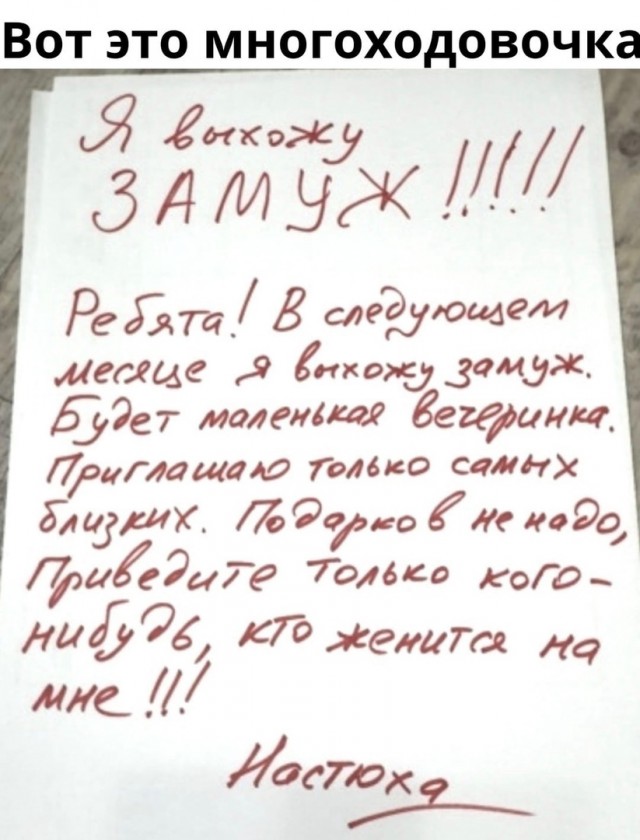 Вот это многоходовочка
Я выхожу
ЗАМУЖ !!!!!
Ребята! В следующем
месяце я выхожу замуж.
Будет маленькая вечеринка.
Приглашаю только самых
близких. Подарков не надо,
Приведите только кого-
нибудь, кто женится на
мне!!!
Настюха